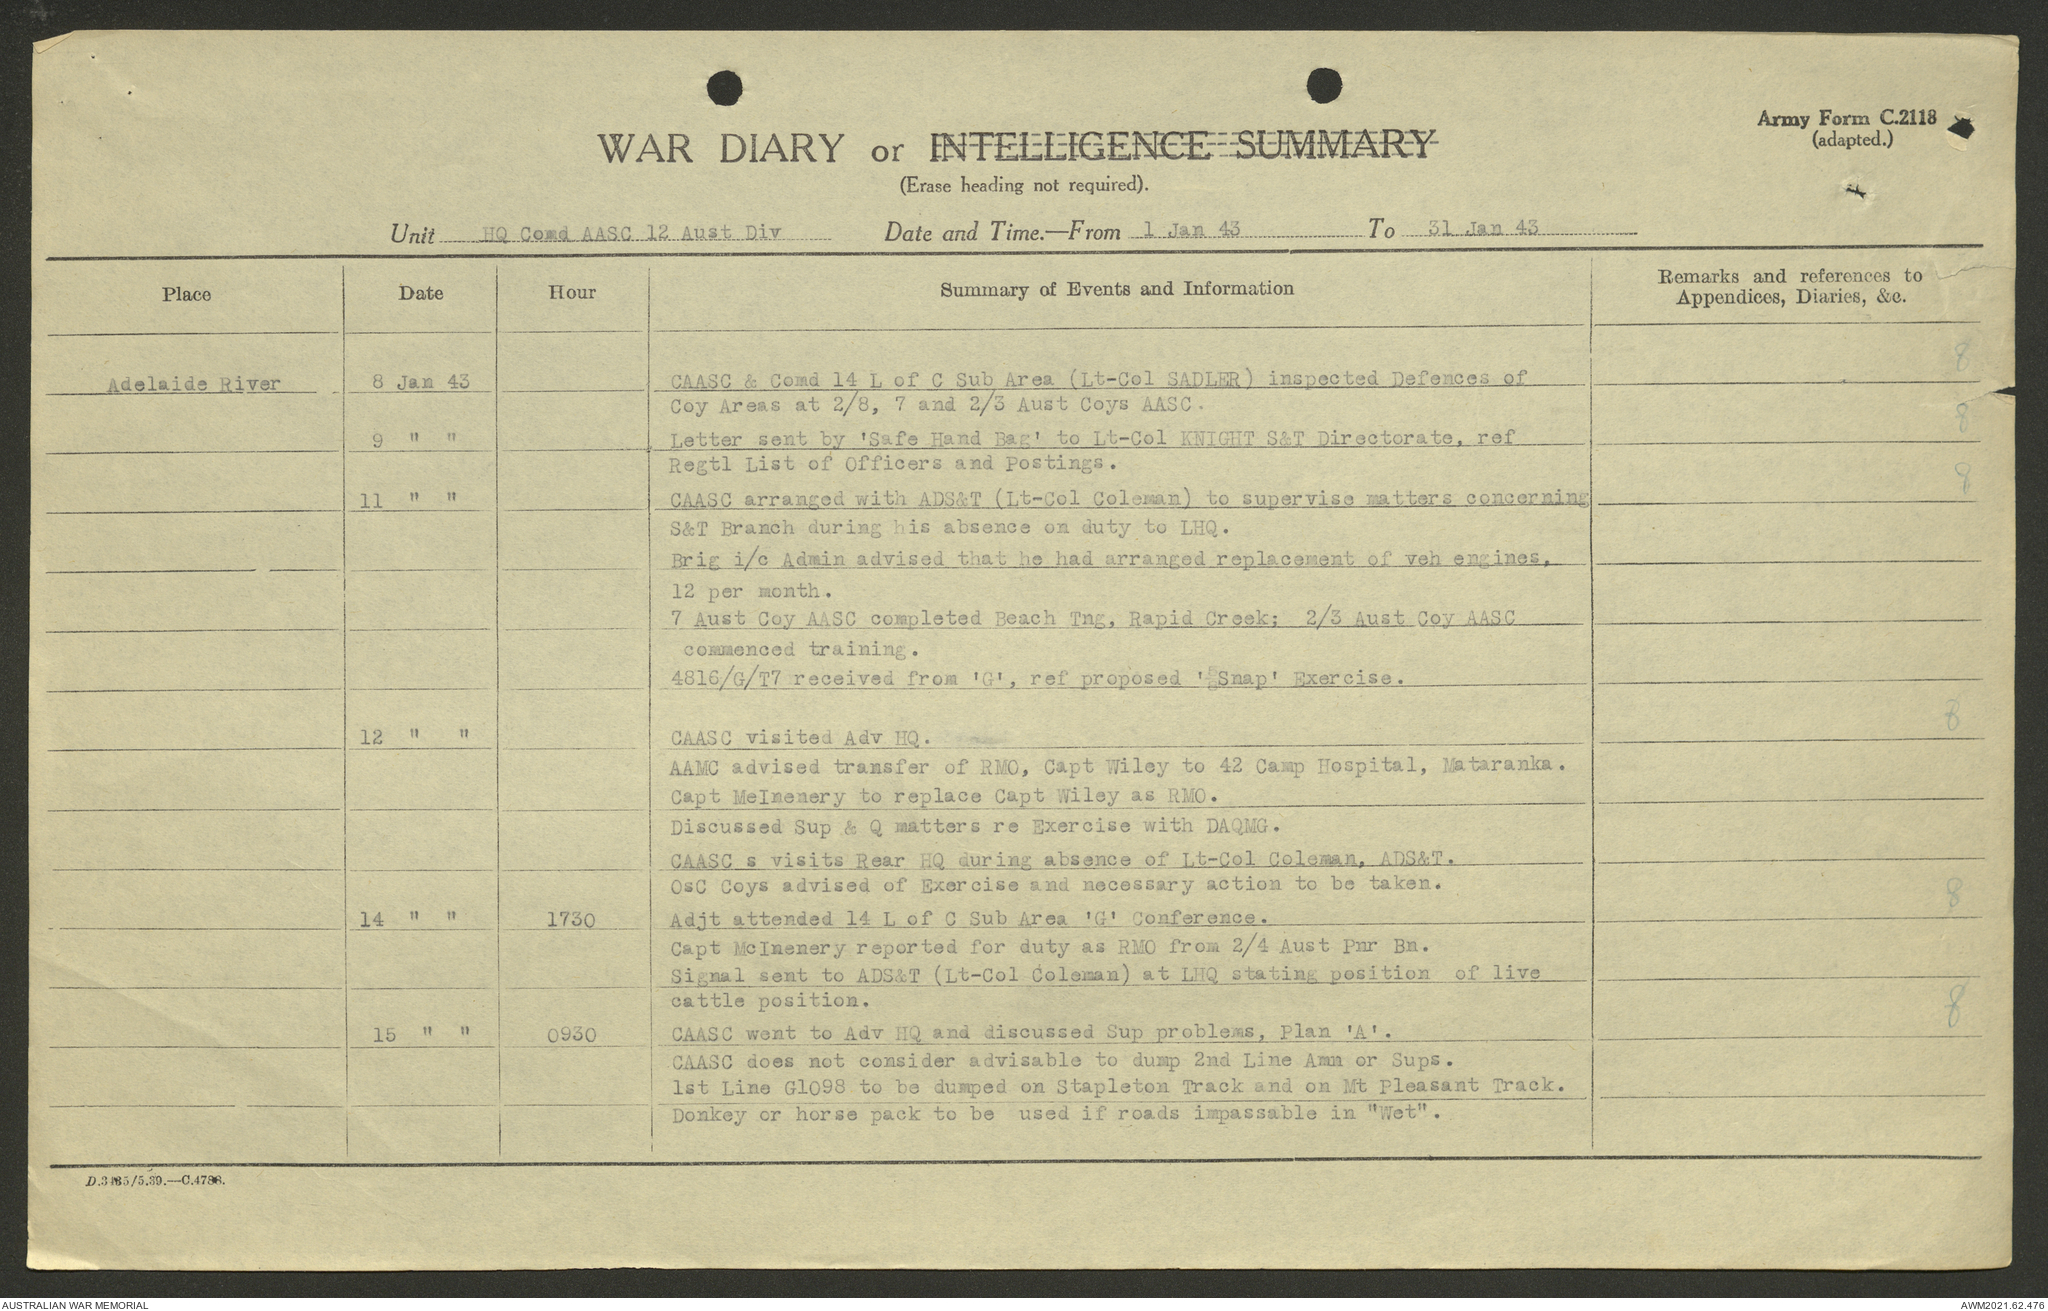 Army Form C.2118
(adapted.)
WAR DIARY or INTELLIGENCE SUMMARY
(Erase heading not required).
Unit HQ Comd AASC 12 Aust Div Date and Time.—From 1 Jan 43 To 31 Jan 43
Place Date Hour Summary of Events and Information Remarks and references to Appendices, Diaries, &c.
Adelaide River 8 Jan 43 CAASC & Comd 14 L of C Sub Area (Lt-Col SADLER) inspected Defences of 8
Coy Areas at 2/8, 7 and 2/3 Aust Coys AASC.
9 " " Letter sent by 'Safe Hand Bag' to Lt-Col KNIGHT S&T Directorate, ref 8
Regtl List of Officers and Postings.
11 " " CAASC arranged with ADS&T (Lt-Col Coleman) to supervise matters concerning 8
S&T Branch during his absence on duty to LHQ.
Brig i/c Admin advised that he had arranged replacement of veh engines,
12 per month.
7 Aust Coy AASC completed Beach Tng, Rapid Creek; 2/3 Aust Coy AASC
commenced training.
4816/G/T7 received from 'G', ref proposed 'Snap' Exercise.
12 " " CAASC visited Adv HQ. 8
AAMC advised transfer of RMO, Capt Wiley to 42 Camp Hospital, Mataranka.
Capt McInenery to replace Capt Wiley as RMO.
Discussed Sup & Q matters re Exercise with DAQMG.
CAASC s visits Rear HQ during absence of Lt-Col Coleman, ADS&T.
OsC Coys advised of Exercise and necessary action to be taken.
14 " " 1730 Adjt attended 14 L of C Sub Area 'G' Conference. 8
Capt McInenery reported for duty as RMO from 2/4 Aust Pnr Bn.
Signal sent to ADS&T (Lt-Col Coleman) at LHQ stating position of live
cattle position.
15 " " 0930 CAASC went to Adv HQ and discussed Sup problems, Plan 'A'. 8
CAASC does not consider advisable to dump 2nd Line Amn or Sups.
1st Line G1098 to be dumped on Stapleton Track and on Mt Pleasant Track.
Donkey or horse pack to be used if roads impassable in "Wet".
AUSTRALIAN WAR MEMORIAL
AWM2021.62.476